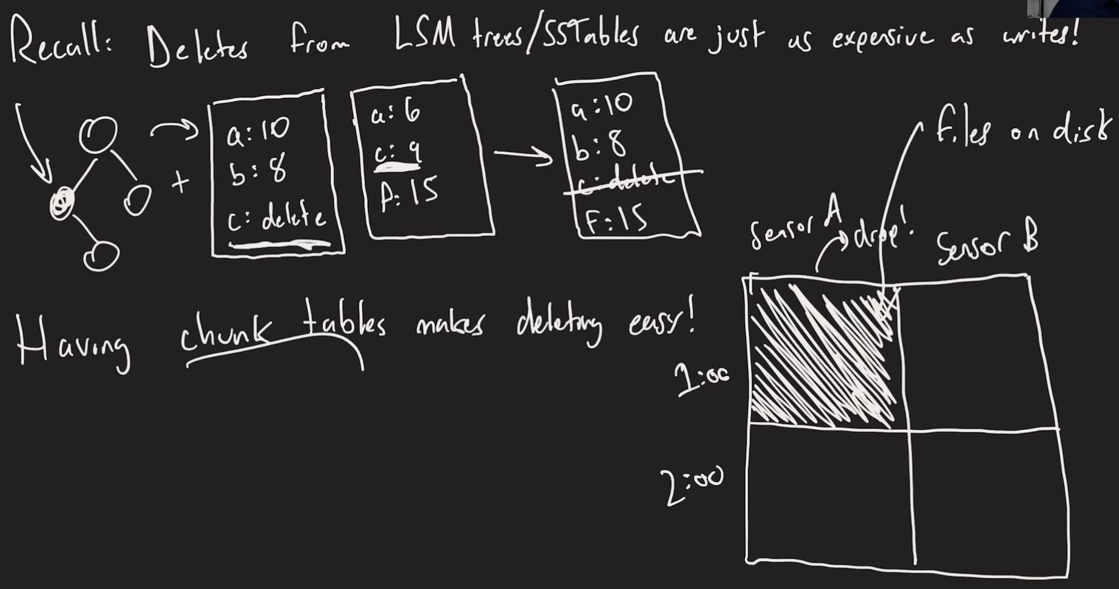 Recall: Deletes from LSM trees/SSTables are just as expensive as writes!
+
a:10
b:8
c: delete
a:6
c:9
F:15
a:10
b:8
c:delete
F:15
files on disk
Sensor A
drop!
Sensor B
Having chunk tables makes deleting easy!
1:00
2:00